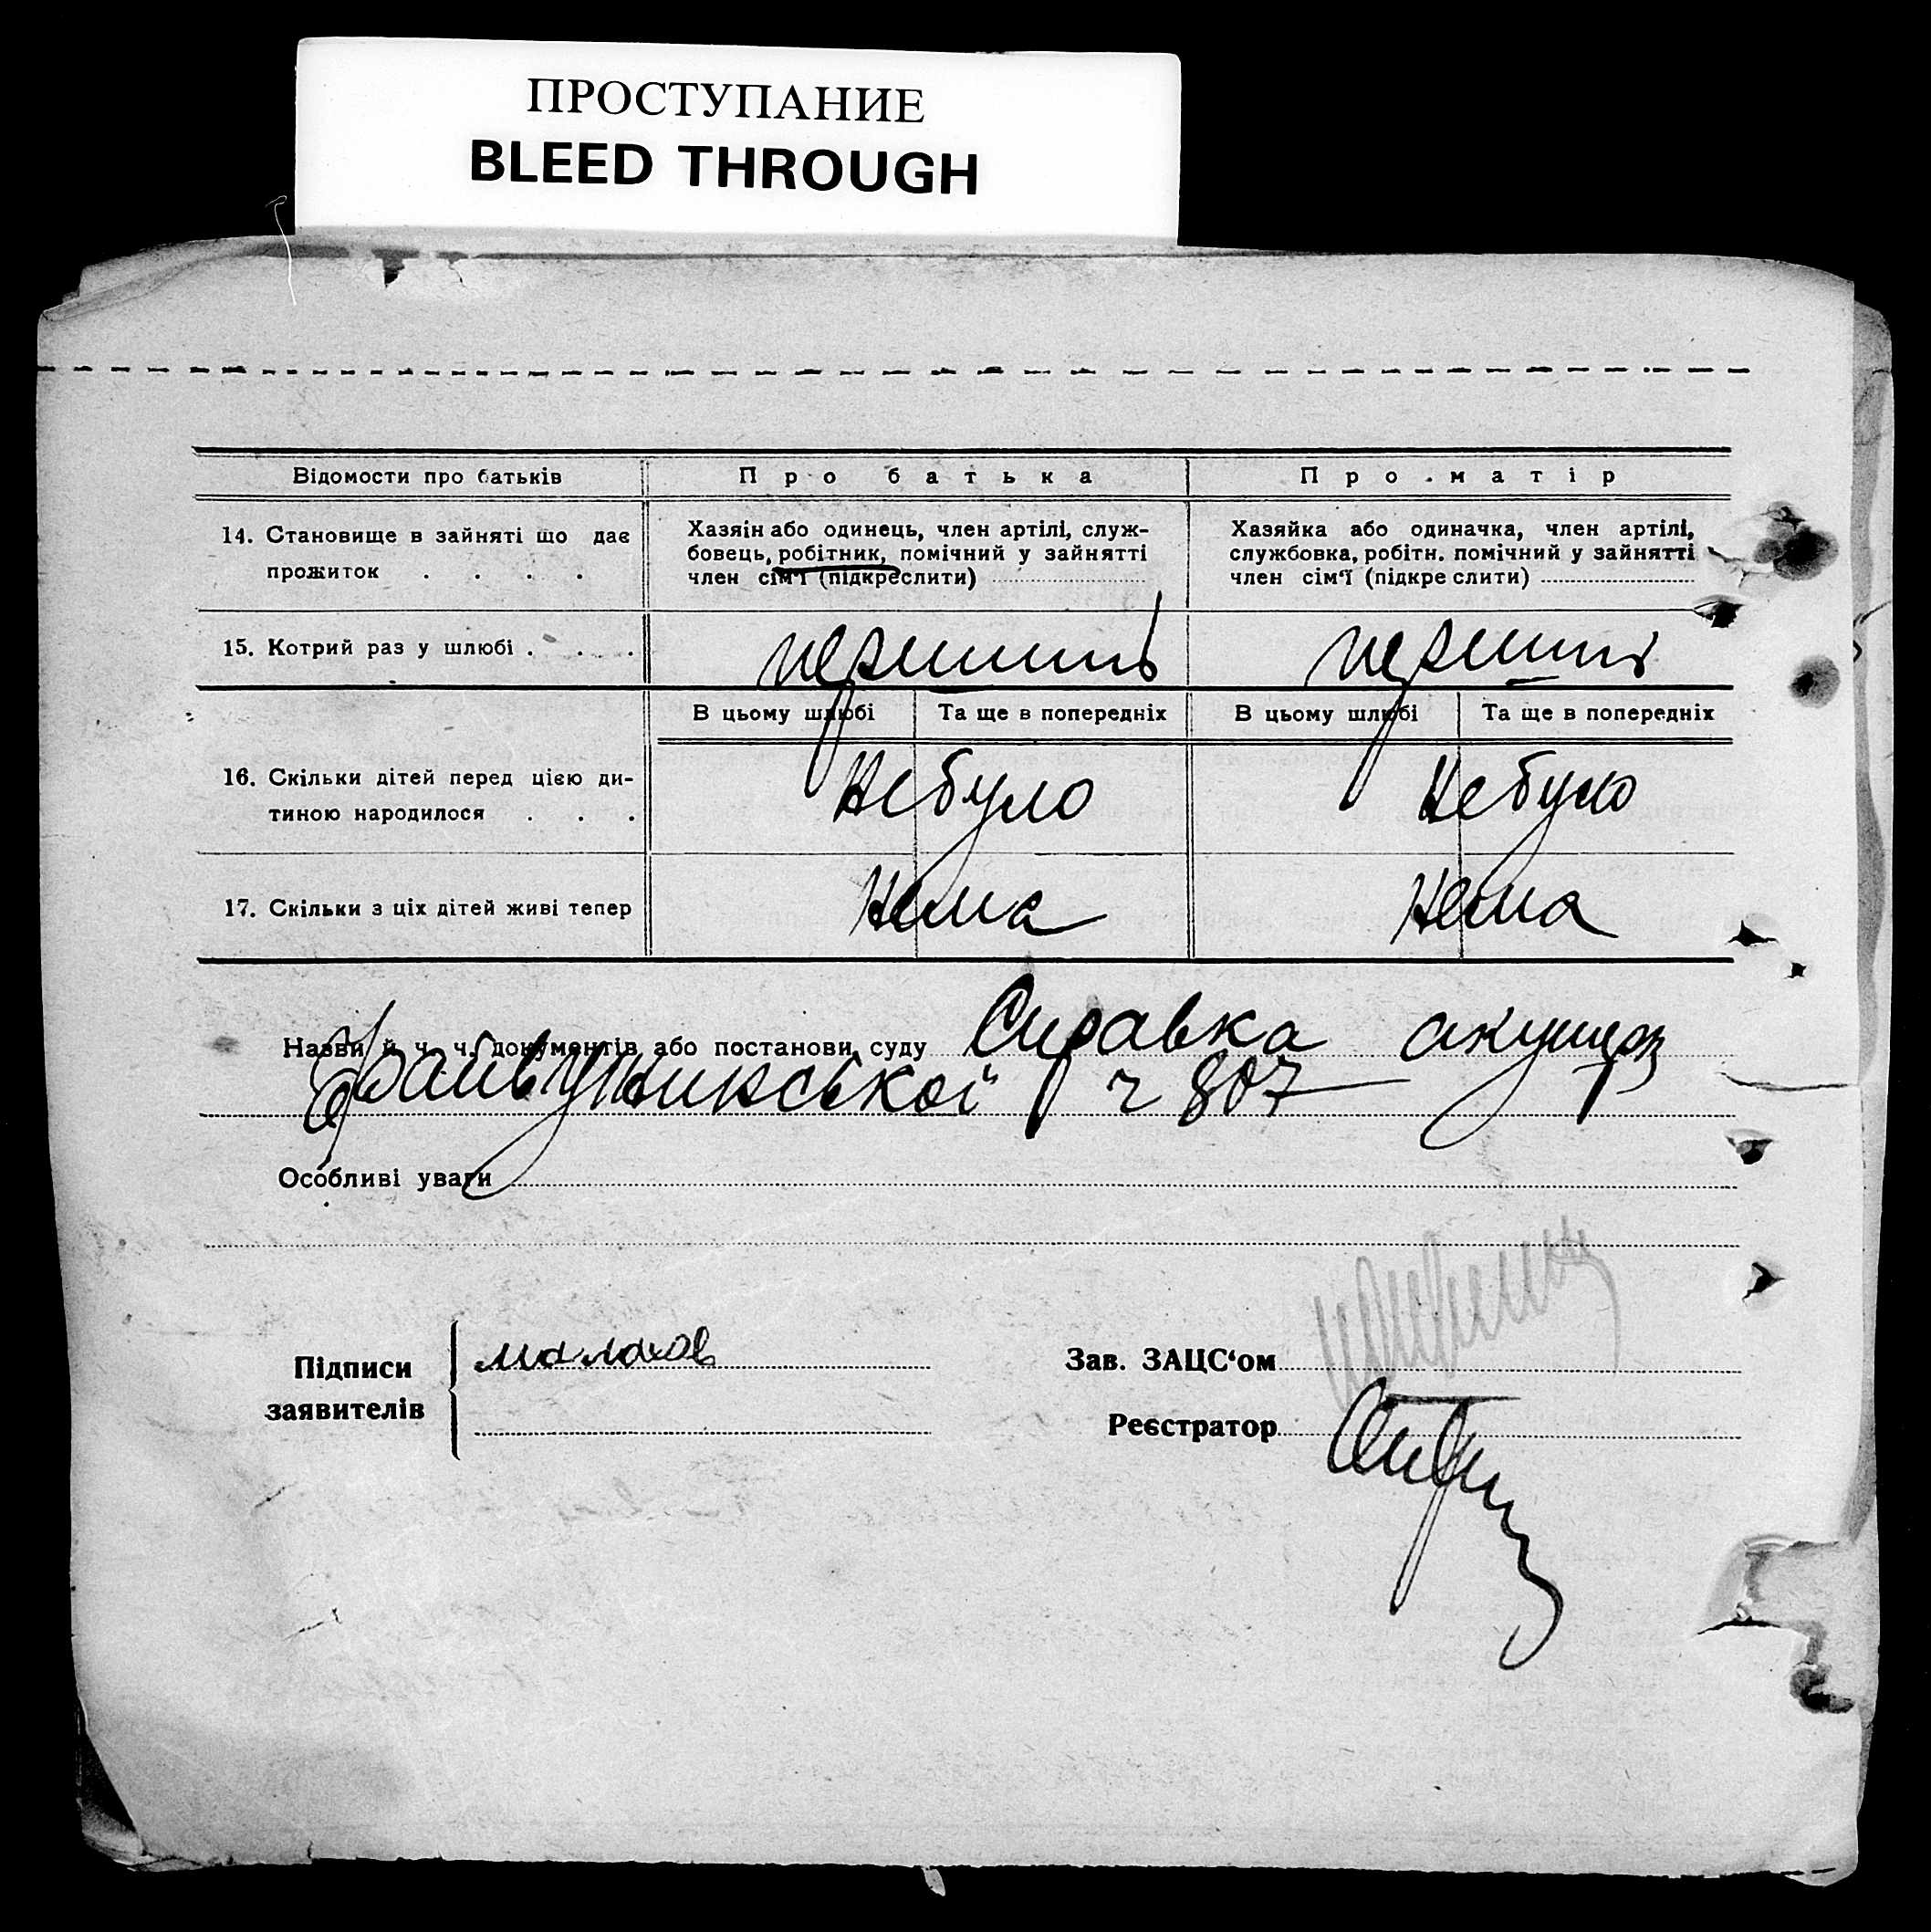 ПРОСТУПАНИЕ
BLEED THROUGH
Відомости про батьків
Про батька
Про матір
14. Становище в зайняті що дає
прожиток . . . .
Хазяїн або одинець, член артілі, служ-
бовець, робітник, помічний у зайнятті
член сім'ї (підкреслити)
Хазяйка або одиначка, член артілі,
службовка, робітн. помічний у зайнятті
член сім'ї (підкреслити)
15. Котрий раз у шлюбі . . .
перший
перший
В цьому шлюбі
Та ще в попередніх
В цьому шлюбі
Та ще в попередніх
16. Скільки дітей перед цією ди-
тиною народилося . . .
Небуло
Небуло
17. Скільки з ціх дітей живі тепер
Нема
Нема
Назви й ч. ч. документів або постанови суду Справка акушер
ч 807
Особливі уваги
Підписи
заявителів
малахов
Зав. ЗАЦС‘ом
Реєстратор